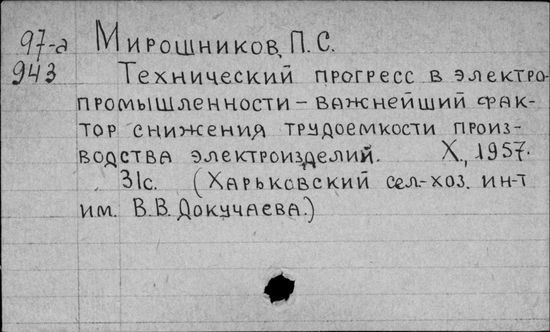 97-а Мирошников, П. С.
943 Технический прогресс в электро-
промышленности – важнейший фак-
тор снижения трудоемкости произ-
водства электроизделий. Х., 1957.
31с. (Харьковский сел-хоз. ин-т
им. В. В. Докучаева.)